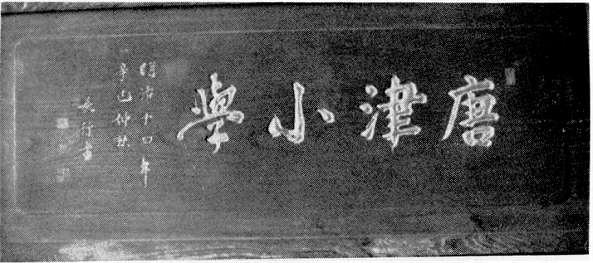 唐津小學
明治十四年
辛巳仲秋